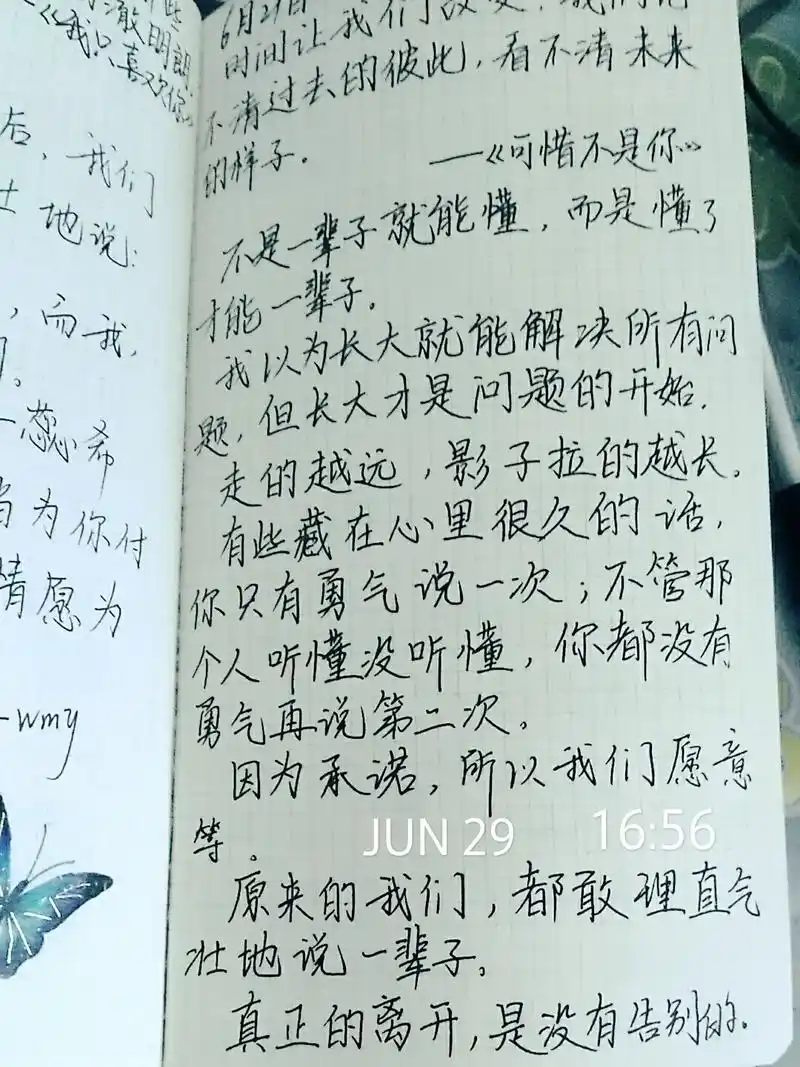 些
澈明朗
《我只喜欢你》
后，我们
地说：
，而我，
蕊希
为你付
情愿为
-wmy
6月29日
时间让我们改变，我们
不清过去的彼此，看不清未来
的样子。
——《可惜不是你》
不是一辈子就能懂，而是懂了
才能一辈子。
我以为长大就能解决所有问
题，但长大才是问题的开始．
走的越远，影子拉的越长。
有些藏在心里很久的话，
你只有勇气说一次；不管那
个人听懂没听懂，你都没有
勇气再说第二次。
因为承诺，所以我们愿意
等。
JUN 29 16:56
原来的我们，都敢理直气
壮地说一辈子。
真正的离开，是没有告别的。